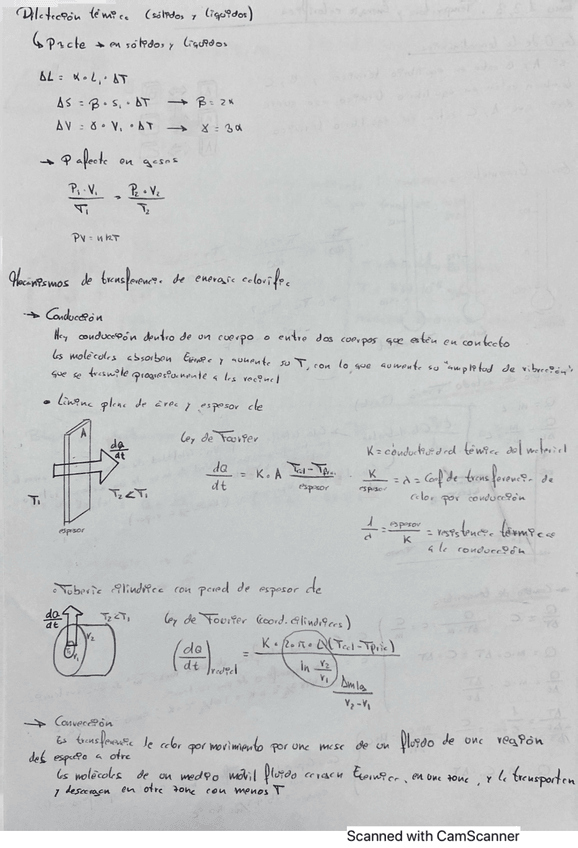 Dilatación térmica (sólidos y líquidos)
↳ Pacte → en sólidos y líquidos
ΔL = α · L₁ · ΔT
ΔS = β · S₁ · ΔT → β = 2α
ΔV = γ · V₁ · ΔT → γ = 3α
→ P afecta en gases
P₁·V₁/T₁ = P₂·V₂/T₂
PV = nRT
Mecanismos de transferencia de energía calorífica
→ Conducción
Hay conducción dentro de un cuerpo o entre dos cuerpos que estén en contacto
las moléculas absorben Etérmica y aumenta su T, con lo que aumenta su "amplitud de vibración"
que se trasmite progresivamente a las vecinas
• Lámina plana de área y espesor de
A
dQ/dt
T₁
T₂ < T₁
espesor
Ley de Fourier
dQ/dt = K·A (Tcal - Tfría)/espesor
K = conductividad térmica del material
K/espesor = λ = Coef de transferencia de
calor por conducción
= espesor/K = resistencia térmica
a la conducción
• Tubería cilíndrica con pared de espesor de
dQ/dt
T₂<T₁
r₂
r₁
Ley de Fourier (coord. cilíndricas)
(dQ/dt)radial = K · 2·π·L (Tcal - Tfría) / ln r₂/r₁
Amlog
r₂-r₁
→ Convección
Es transferencia de calor por movimiento por una masa de un fluido de una región
del espacio a otra
las moléculas de un medio móvil fluido cargan Etérmica, en una zona, y la transportan
y descargan en otra zona con menos T
Scanned with CamScanner